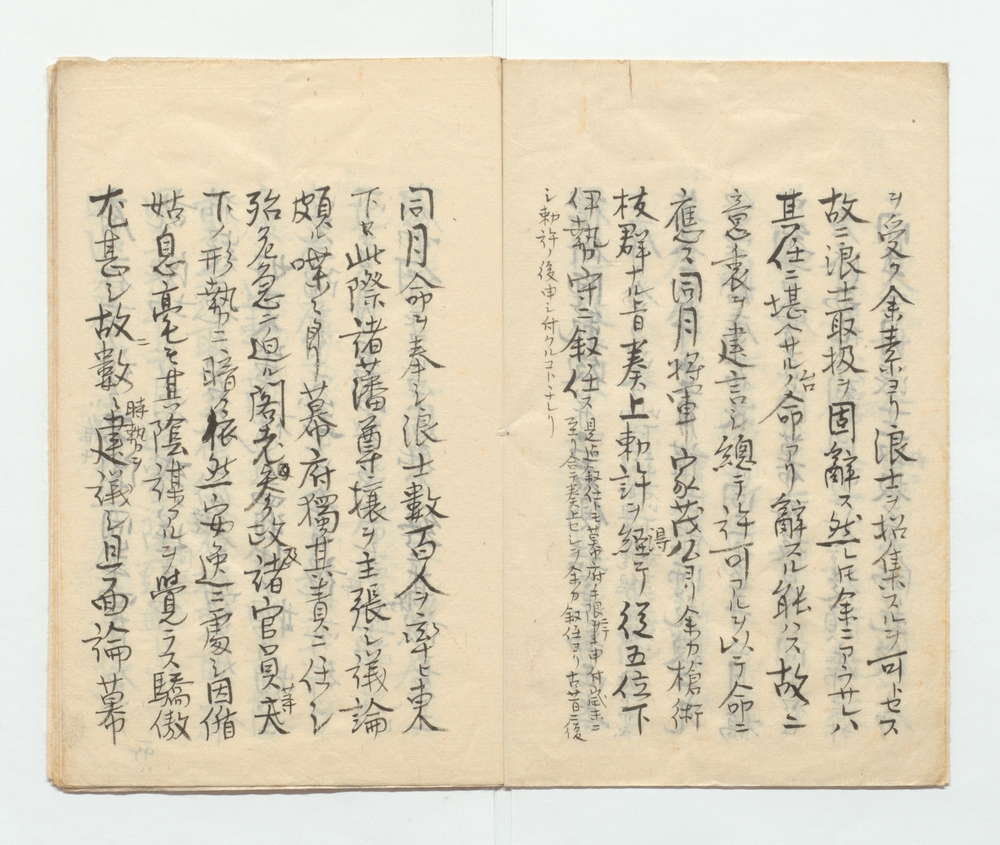 ヲ受ク余素ヨリ浪士ヲ招集スルヲ可トセス
故ニ浪士取扱ヲ固辭ス然レ𪜈余ニアラサレハ
其任ニ堪ヘサルノ台命アリ辭スル能ハス故ニ
意衷ヲ建言シ總テ許可アルヲ以テ命ニ
應ス同月將軍家茂公ヨリ余カ槍術
抜群ナル旨奏上勅許ヲ得テ從五位下
伊勢守ニ叙任ス是迄叙任ハ幕府手限ニテ申付歳末ニ
至リ合テ奏上セシヲ余カ叙任ヨリ古昔ニ復
シ勅許ノ後申シ付クルコトヽナレリ
同月命ヲ奉シ浪士數百人ヲ率ヒ東
下ス此際諸藩尊攘ヲ主張シ議論
頗ル喋々シ幕府獨其責ニ任シ
殆危急ニ迫ル閣老参政及諸官員等天
下ノ形勢ニ暗ク依然安逸ニ處シ因循
姑息毫モ其陰謀アルヲ覺ラス驕傲
尤甚シ故ニ數々時勢ヲ建議シ且面論幕